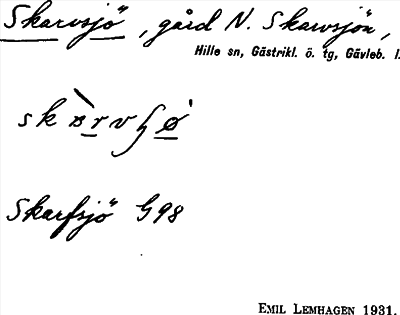 Skarvsjö, gård N. Skarvsjön,
Hille sn, Gästrikl. ö. tg, Gävleb. l.
Skarfsjö G98
EMIL LEMHAGEN 1931.